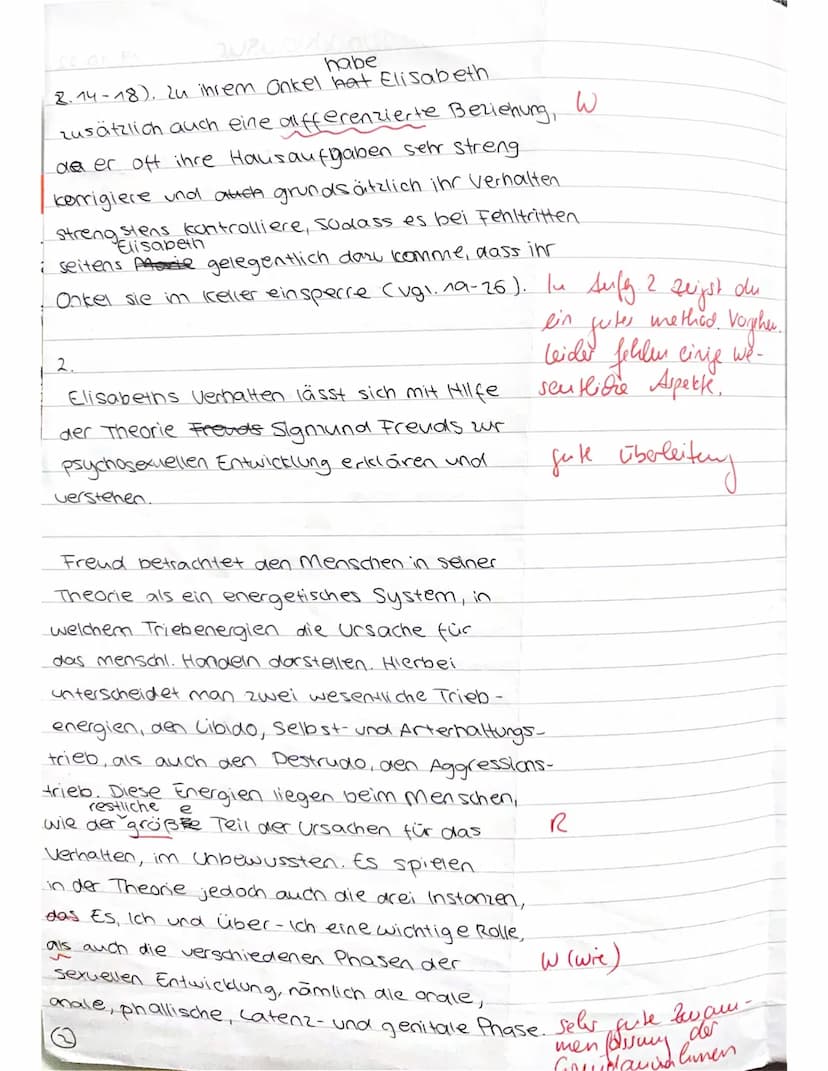 habe
Z. 14-18). Zu ihrem Onkel hat Elisabeth
zusätzlich auch eine differenzierte Beziehung, W
da er oft ihre Hausaufgaben sehr streng
korrigiere und auch grundsätzlich ihr Verhalten
strengstens kontrolliere, sodass es bei Fehltritten
Elisabeth
seitens Marie gelegentlich dazu komme, dass ihr
Onkel sie im Keller einsperre (vgl. 19-26). In Aufg 2 zeigst du
ein gutes method. Vorgehen.
leider fehlen einige we-
2.
sentliche Aspekte.
Elisabeths Verhalten lässt sich mit Hilfe
der Theorie Freuds Sigmund Freuds zur
psychosexuellen Entwicklung erklären und gute Überleitung
verstehen.
Freud betrachtet den Menschen in seiner
Theorie als ein energetisches System, in
welchem Triebenergien die Ursache für
das menschl. Handeln darstellen. Hierbei
unterscheidet man zwei wesentliche Trieb-
energien, den Libido, Selbst- und Arterhaltungs-
trieb, als auch den Destrudo, den Aggressions-
trieb. Diese Energien liegen beim Menschen,
restliche e
wie der größte Teil der Ursachen für das R
Verhalten, im Unbewussten. Es spielen
in der Theorie jedoch auch die drei Instanzen,
das Es, Ich und Über-Ich eine wichtige Rolle,
als auch die verschiedenen Phasen der W (wie)
sexuellen Entwicklung, nämlich die orale,
anale, phallische, Latenz- und genitale Phase. sehr gute Zusam-
menfassung der
Grundannahmen
2